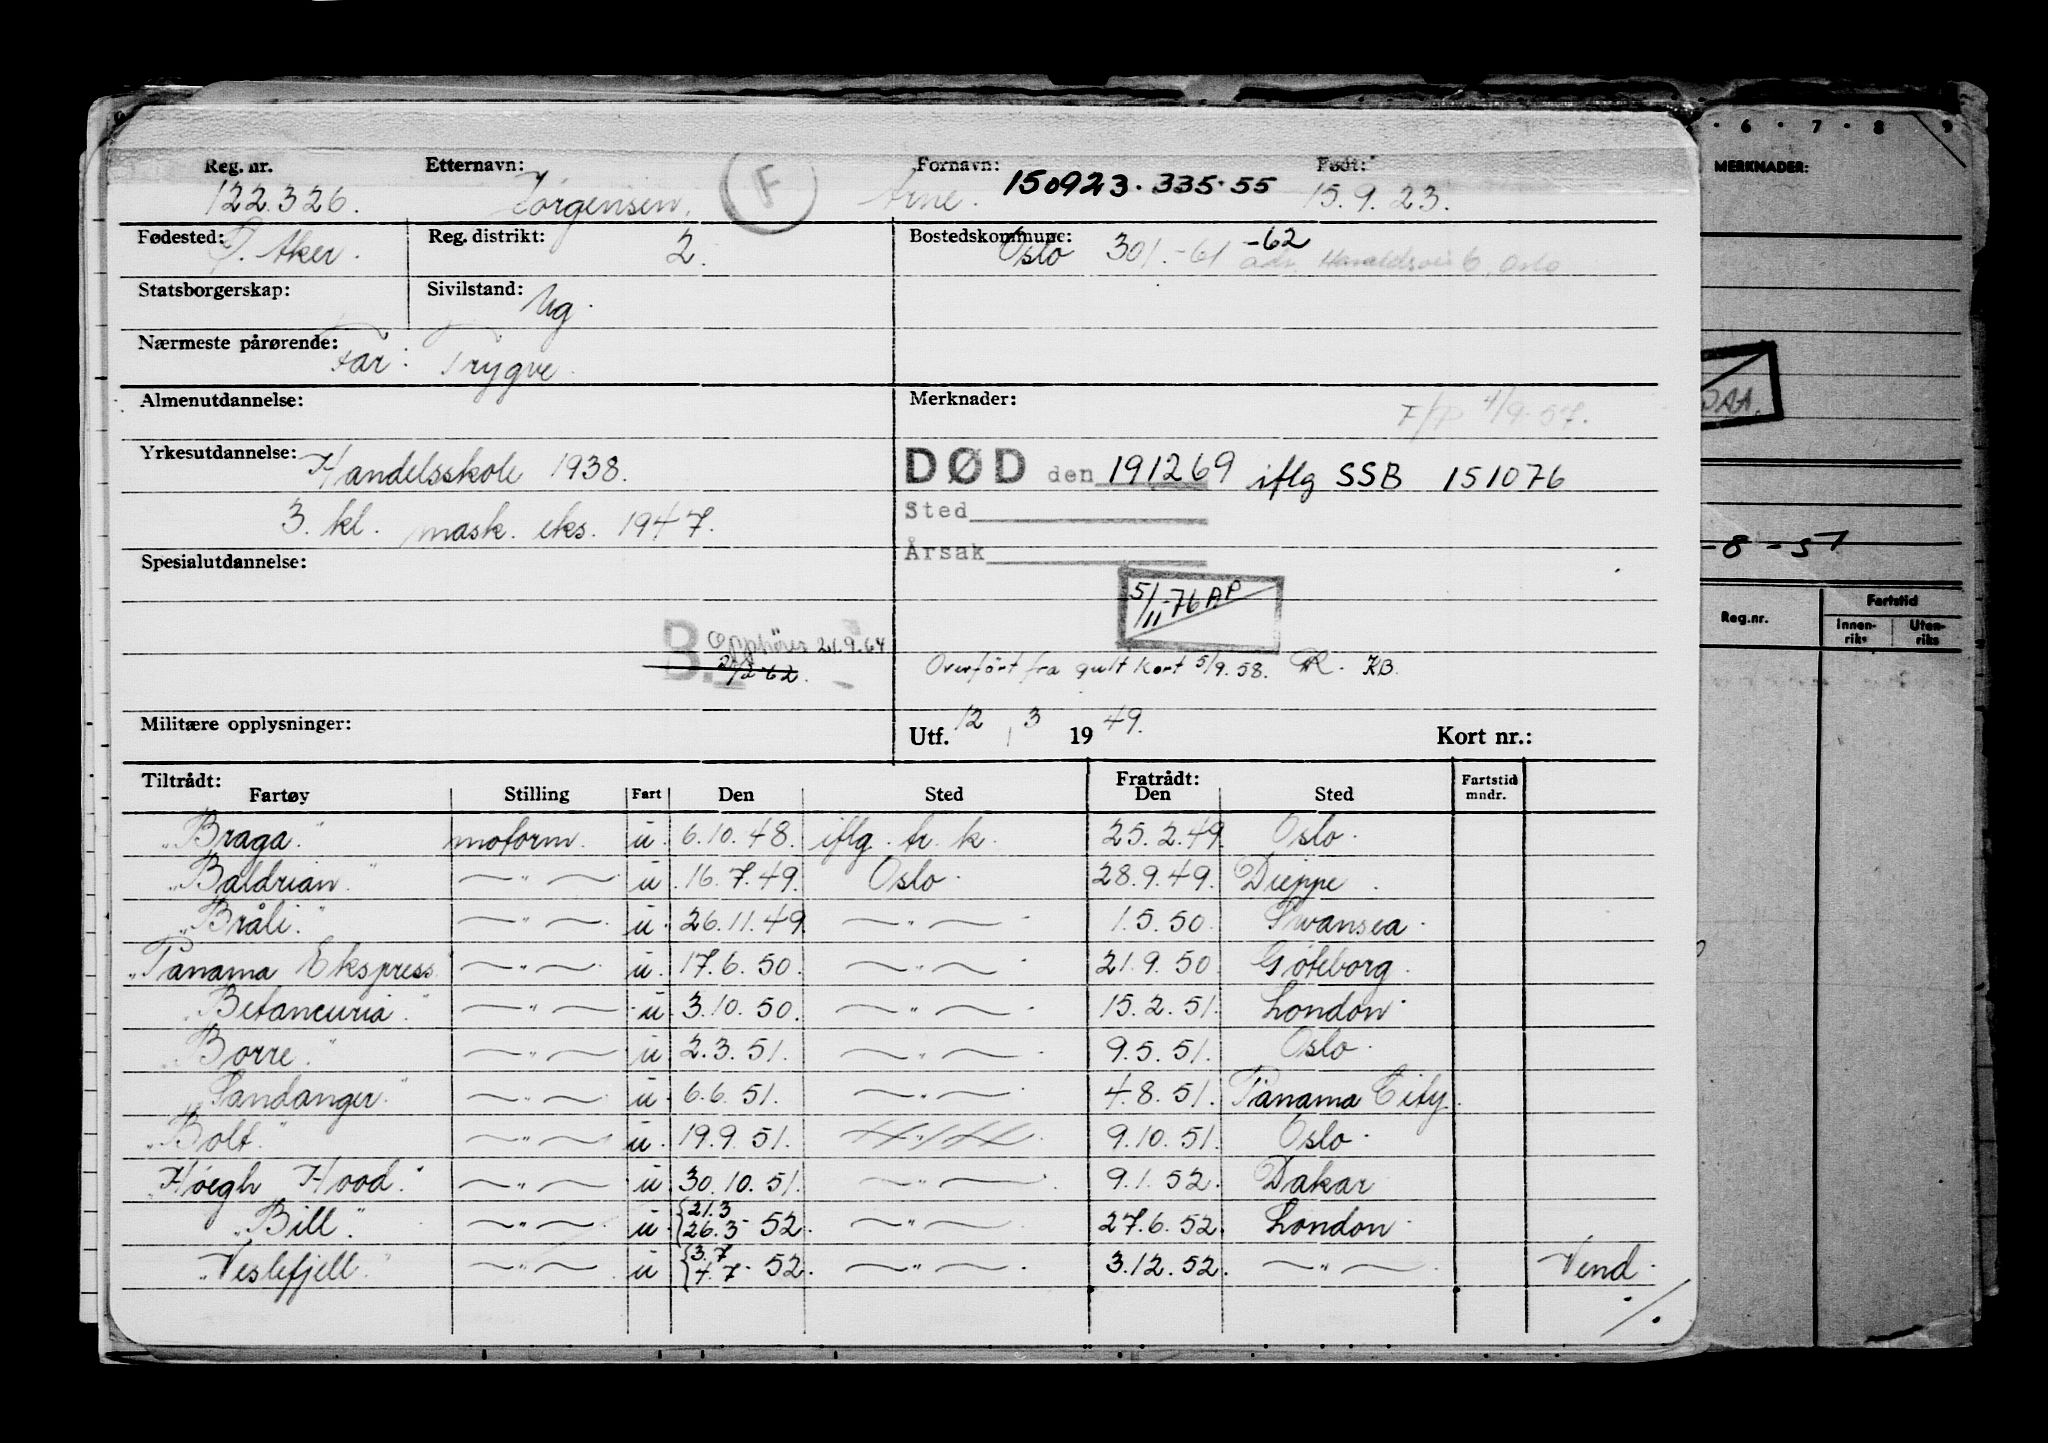 Reg. nr. Etternavn: Fornavn: Født:
122.326. Jörgensen. F Arne. 150923.335.55 15.9.23.
Fødested: Ø. Aker. Reg. distrikt: 2. Bostedskommune: Oslo 301.-61 -62 adr. Haraldsvei 6, Oslo
Statsborgerskap: Sivilstand: Ug.
Nærmeste pårørende: Far: Trygve.
Almenutdannelse: Merknader: F/P 4/9-57.
Yrkesutdannelse: Handelsskole 1938. DØD den 191269 iflg SSB 151076
3. kl. mask. eks. 1947. Sted
Årsak
Spesialutdannelse:
5/11-76 AP
B. Opphörer 21.9.64
Overfört fra gult kort 5/9.58. KB.
Militære opplysninger: Utf. 12 / 3 1949. Kort nr.:
Tiltrådt: Fratrådt:
Fartøy Stilling Fart Den Sted Den Sted Fartstid mndr.
"Braga." motorm. u. 6.10.48. iflg. hr. k. 25.2.49 Oslo.
"Baldrian." — " — u. 16.7.49. Oslo. 28.9.49. Dieppe.
"Bråli." — " — u. 26.11.49 — " — 1.5.50. Swansea.
"Panama Ekspress." — " — u. 17.6.50. — " — 21.9.50. Göteborg.
"Betancuria." — " — u. 3.10.50. — " — 15.2.51. London.
"Borre." — " — u. 2.3.51. — " — 9.5.51. Oslo.
"Sandanger." — " — u. 6.6.51. — " — 4.8.51. Panama City.
"Bolt." — " — u. 19.9.51. — " — 9.10.51. Oslo.
"Höegh Hood." — " — u. 30.10.51. — " — 9.1.52. Dakar
"Bill." — " — u. {21.3 26.3 52. — " — 27.6.52. London.
"Veslefjell." — " — u {3.7 4.7 52. — " — 3.12.52. — " — Vend.
./.
6 7 8 9
MERKNADER:
-8-51
Reg.nr. Fartstid
Innenriks Utenriks